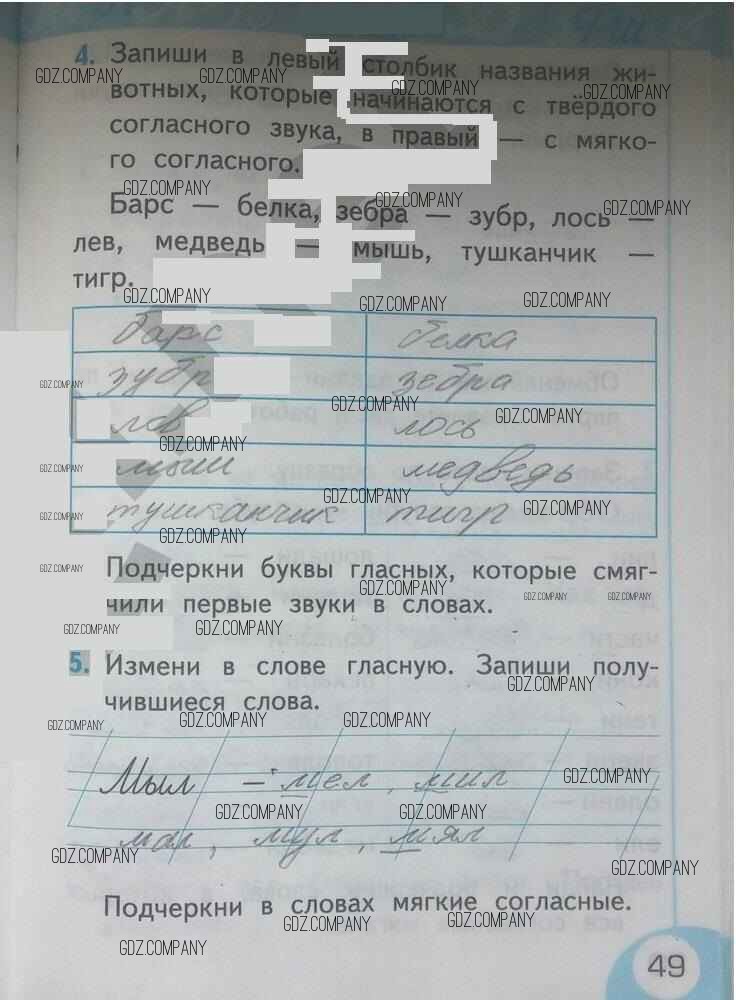 4. Запиши в левый столбик названия жи-
вотных, которые начинаются с твёрдого
согласного звука, в правый — с мягко-
го согласного.
Барс — белка, зебра — зубр, лось —
лев, медведь — мышь, тушканчик —
тигр.
барс белка
зубр зебра
лев лось
мыш медведь
тушканчик тигр
Подчеркни буквы гласных, которые смяг-
чили первые звуки в словах.
5. Измени в слове гласную. Запиши полу-
чившиеся слова.
Мыл — мел, мил
мал, мул, мял
Подчеркни в словах мягкие согласные.
49
GDZ.COMPANY